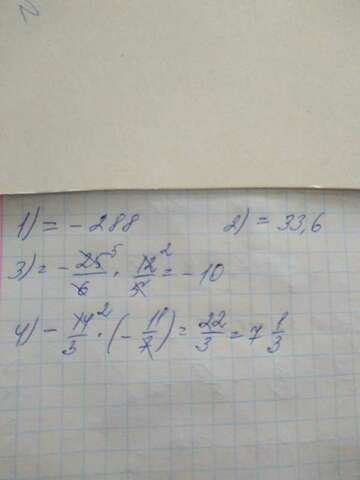 1) = - 288 2) = 33,6
3) = - 25/6 5 · 12/5 2 = - 10
4) - 14/3 2 · (- 11/7) = 22/3 = 7 1/3